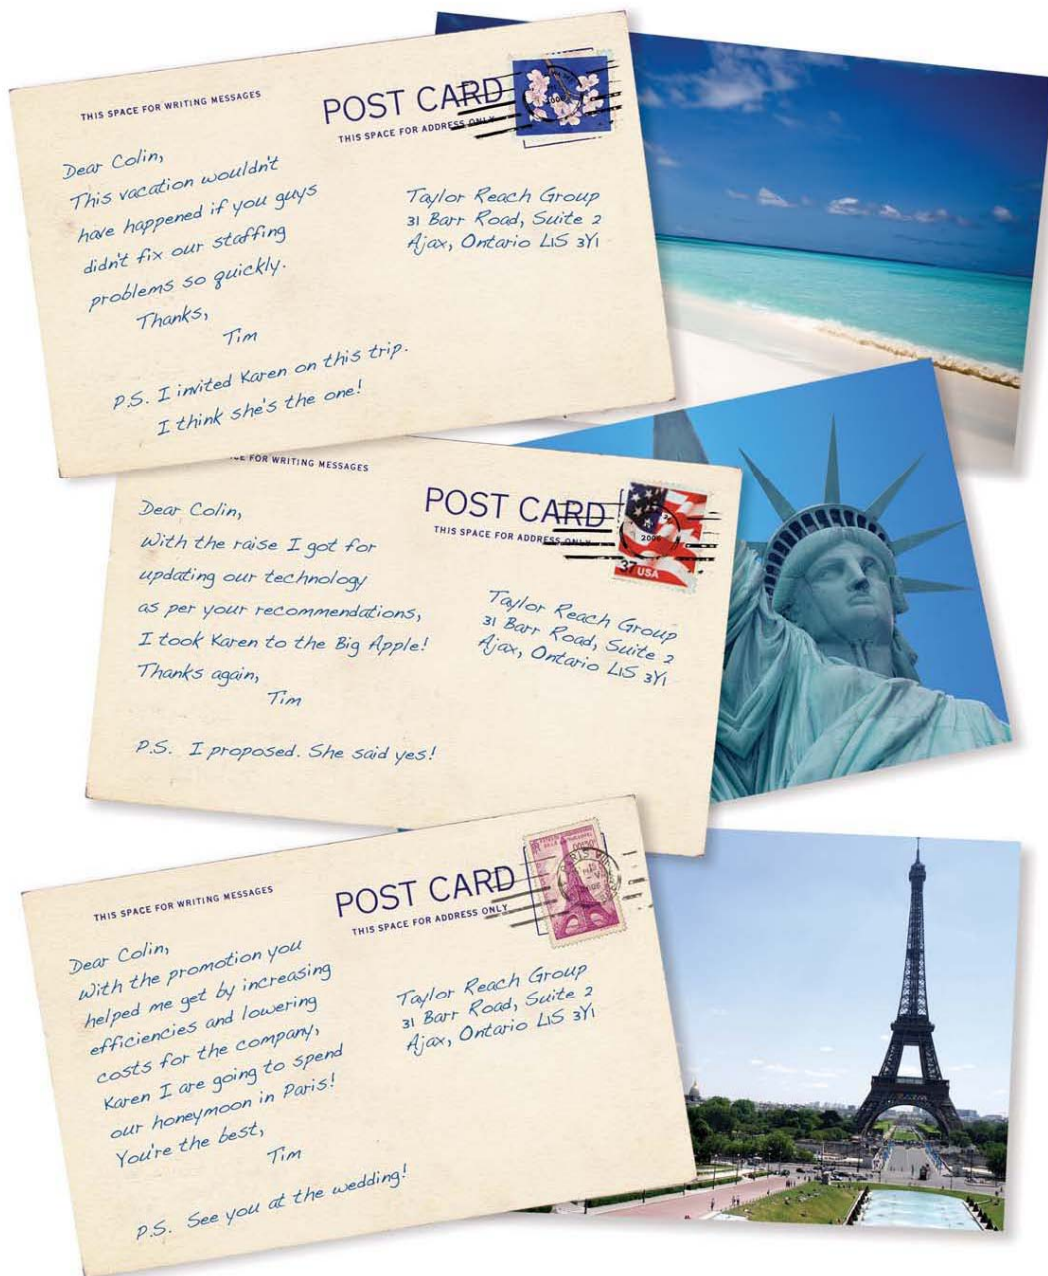 THIS SPACE FOR WRITING MESSAGES
POST CARD
THIS SPACE FOR ADDRESS ONLY
2006
Dear Colin,
This vacation wouldn't
have happened if you guys
didn't fix our staffing
problems so quickly.
Thanks,
Tim
P.S. I invited Karen on this trip.
I think she's the one!
Taylor Reach Group
31 Barr Road, Suite 2
Ajax, Ontario L1S 3Y1
FOR WRITING MESSAGES
POST CARD
THIS SPACE FOR ADDRESS ONLY
37 USA
Dear Colin,
With the raise I got for
updating our technology
as per your recommendations,
I took Karen to the Big Apple!
Thanks again,
Tim
P.S. I proposed. She said yes!
Taylor Reach Group
31 Barr Road, Suite 2
Ajax, Ontario L1S 3Y1
THIS SPACE FOR WRITING MESSAGES
POST CARD
THIS SPACE FOR ADDRESS ONLY
PARIS VII
Dear Colin,
With the promotion you
helped me get by increasing
efficiencies and lowering
costs for the company,
Karen I are going to spend
our honeymoon in Paris!
You're the best,
Tim
P.S. See you at the wedding!
Taylor Reach Group
31 Barr Road, Suite 2
Ajax, Ontario L1S 3Y1